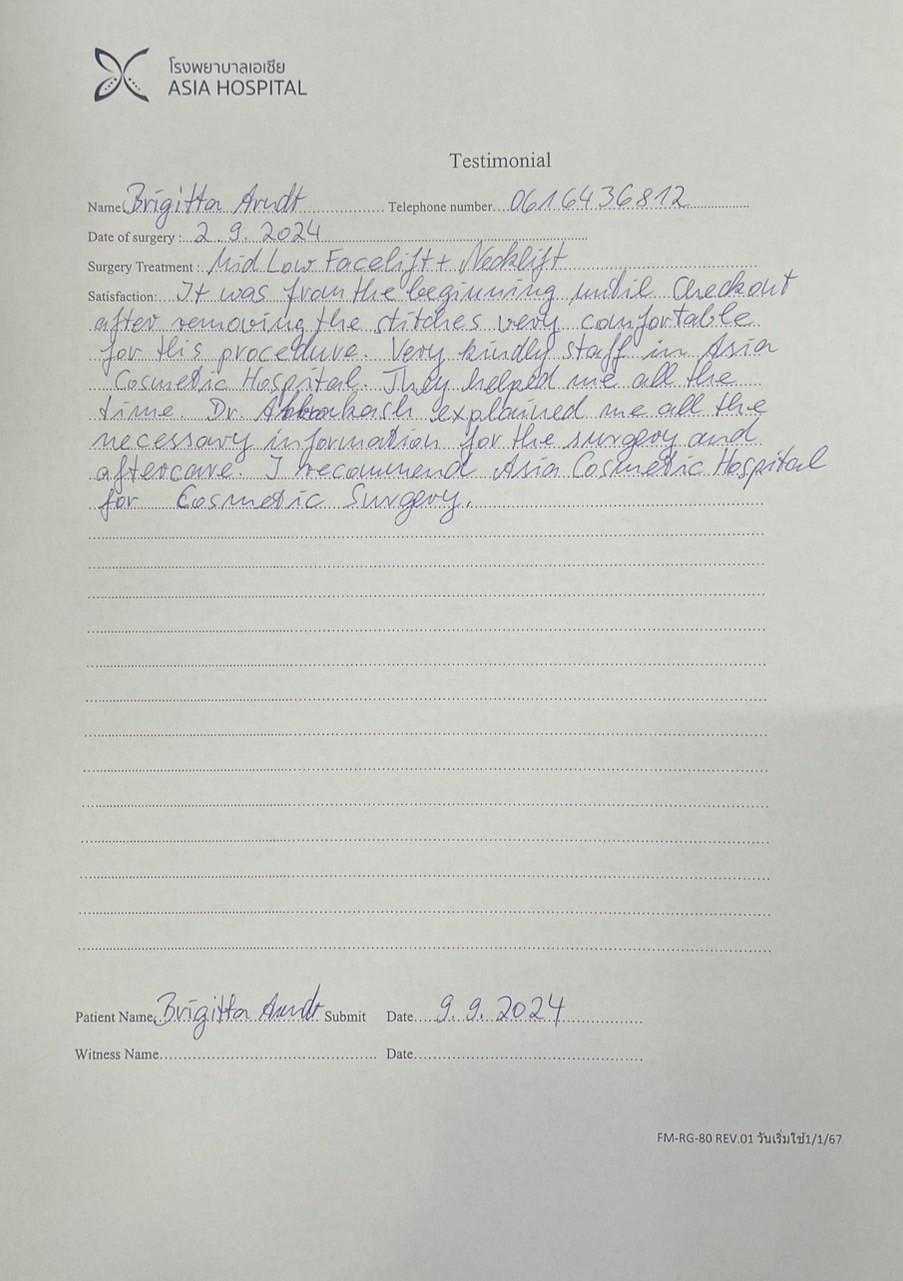 โรงพยาบาลเอเชีย
ASIA HOSPITAL
Testimonial
Name Brigitta Arndt Telephone number 0616436812
Date of surgery : 2.9.2024
Surgery Treatment : Mid Low Facelift + Necklift
Satisfaction: It was from the beginning until Checkout
after removing the stitches very comfortable
for this procedure. Very kindly staff in Asia
Cosmetic Hospital. They helped me all the
time. Dr. explained me all the
necessary information for the surgery and
aftercare. I recommend Asia Cosmetic Hospital
for Cosmetic Surgery.
Patient Name Brigitta Arndt Submit Date 9.9.2024
Witness Name Date
FM-RG-80 REV.01 วันเริ่มใช้1/1/67